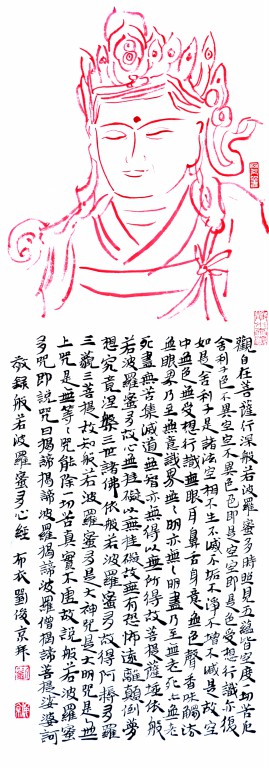 觀自在菩薩行深般若波羅蜜多時照見五蘊皆空度一切苦厄
舍利子色不異空空不異色色即是空空即是色受想行識亦復
如是舍利子是諸法空相不生不滅不垢不淨不增不減是故空
中無色無受想行識無眼耳鼻舌身意無色聲香味觸法
無眼界乃至無意識界無無明亦無無明盡乃至無老死亦無老
死盡無苦集滅道無智亦無得以無所得故菩提薩埵依般
若波羅蜜多故心無挂礙無挂礙故無有恐怖遠離顛倒夢
想究竟涅槃三世諸佛依般若波羅蜜多故得阿耨多羅
三藐三菩提故知般若波羅蜜多是大神咒是大明咒是無
上咒是無等等咒能除一切苦真實不虛故說般若波羅蜜
多咒即說咒曰揭諦揭諦波羅揭諦波羅僧揭諦菩提娑婆訶
敬錄般若波羅蜜多心經 布衣劉俊京拜